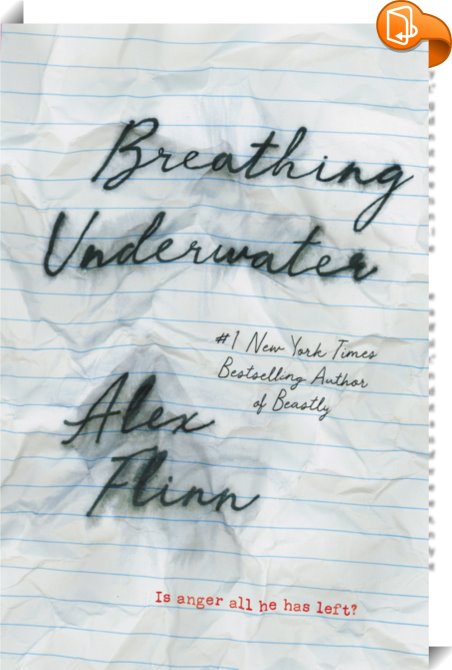 Breathing
Underwater
#1 New York Times
Bestselling Author
of Beastly
Alex
Flinn
Is anger all he has left?